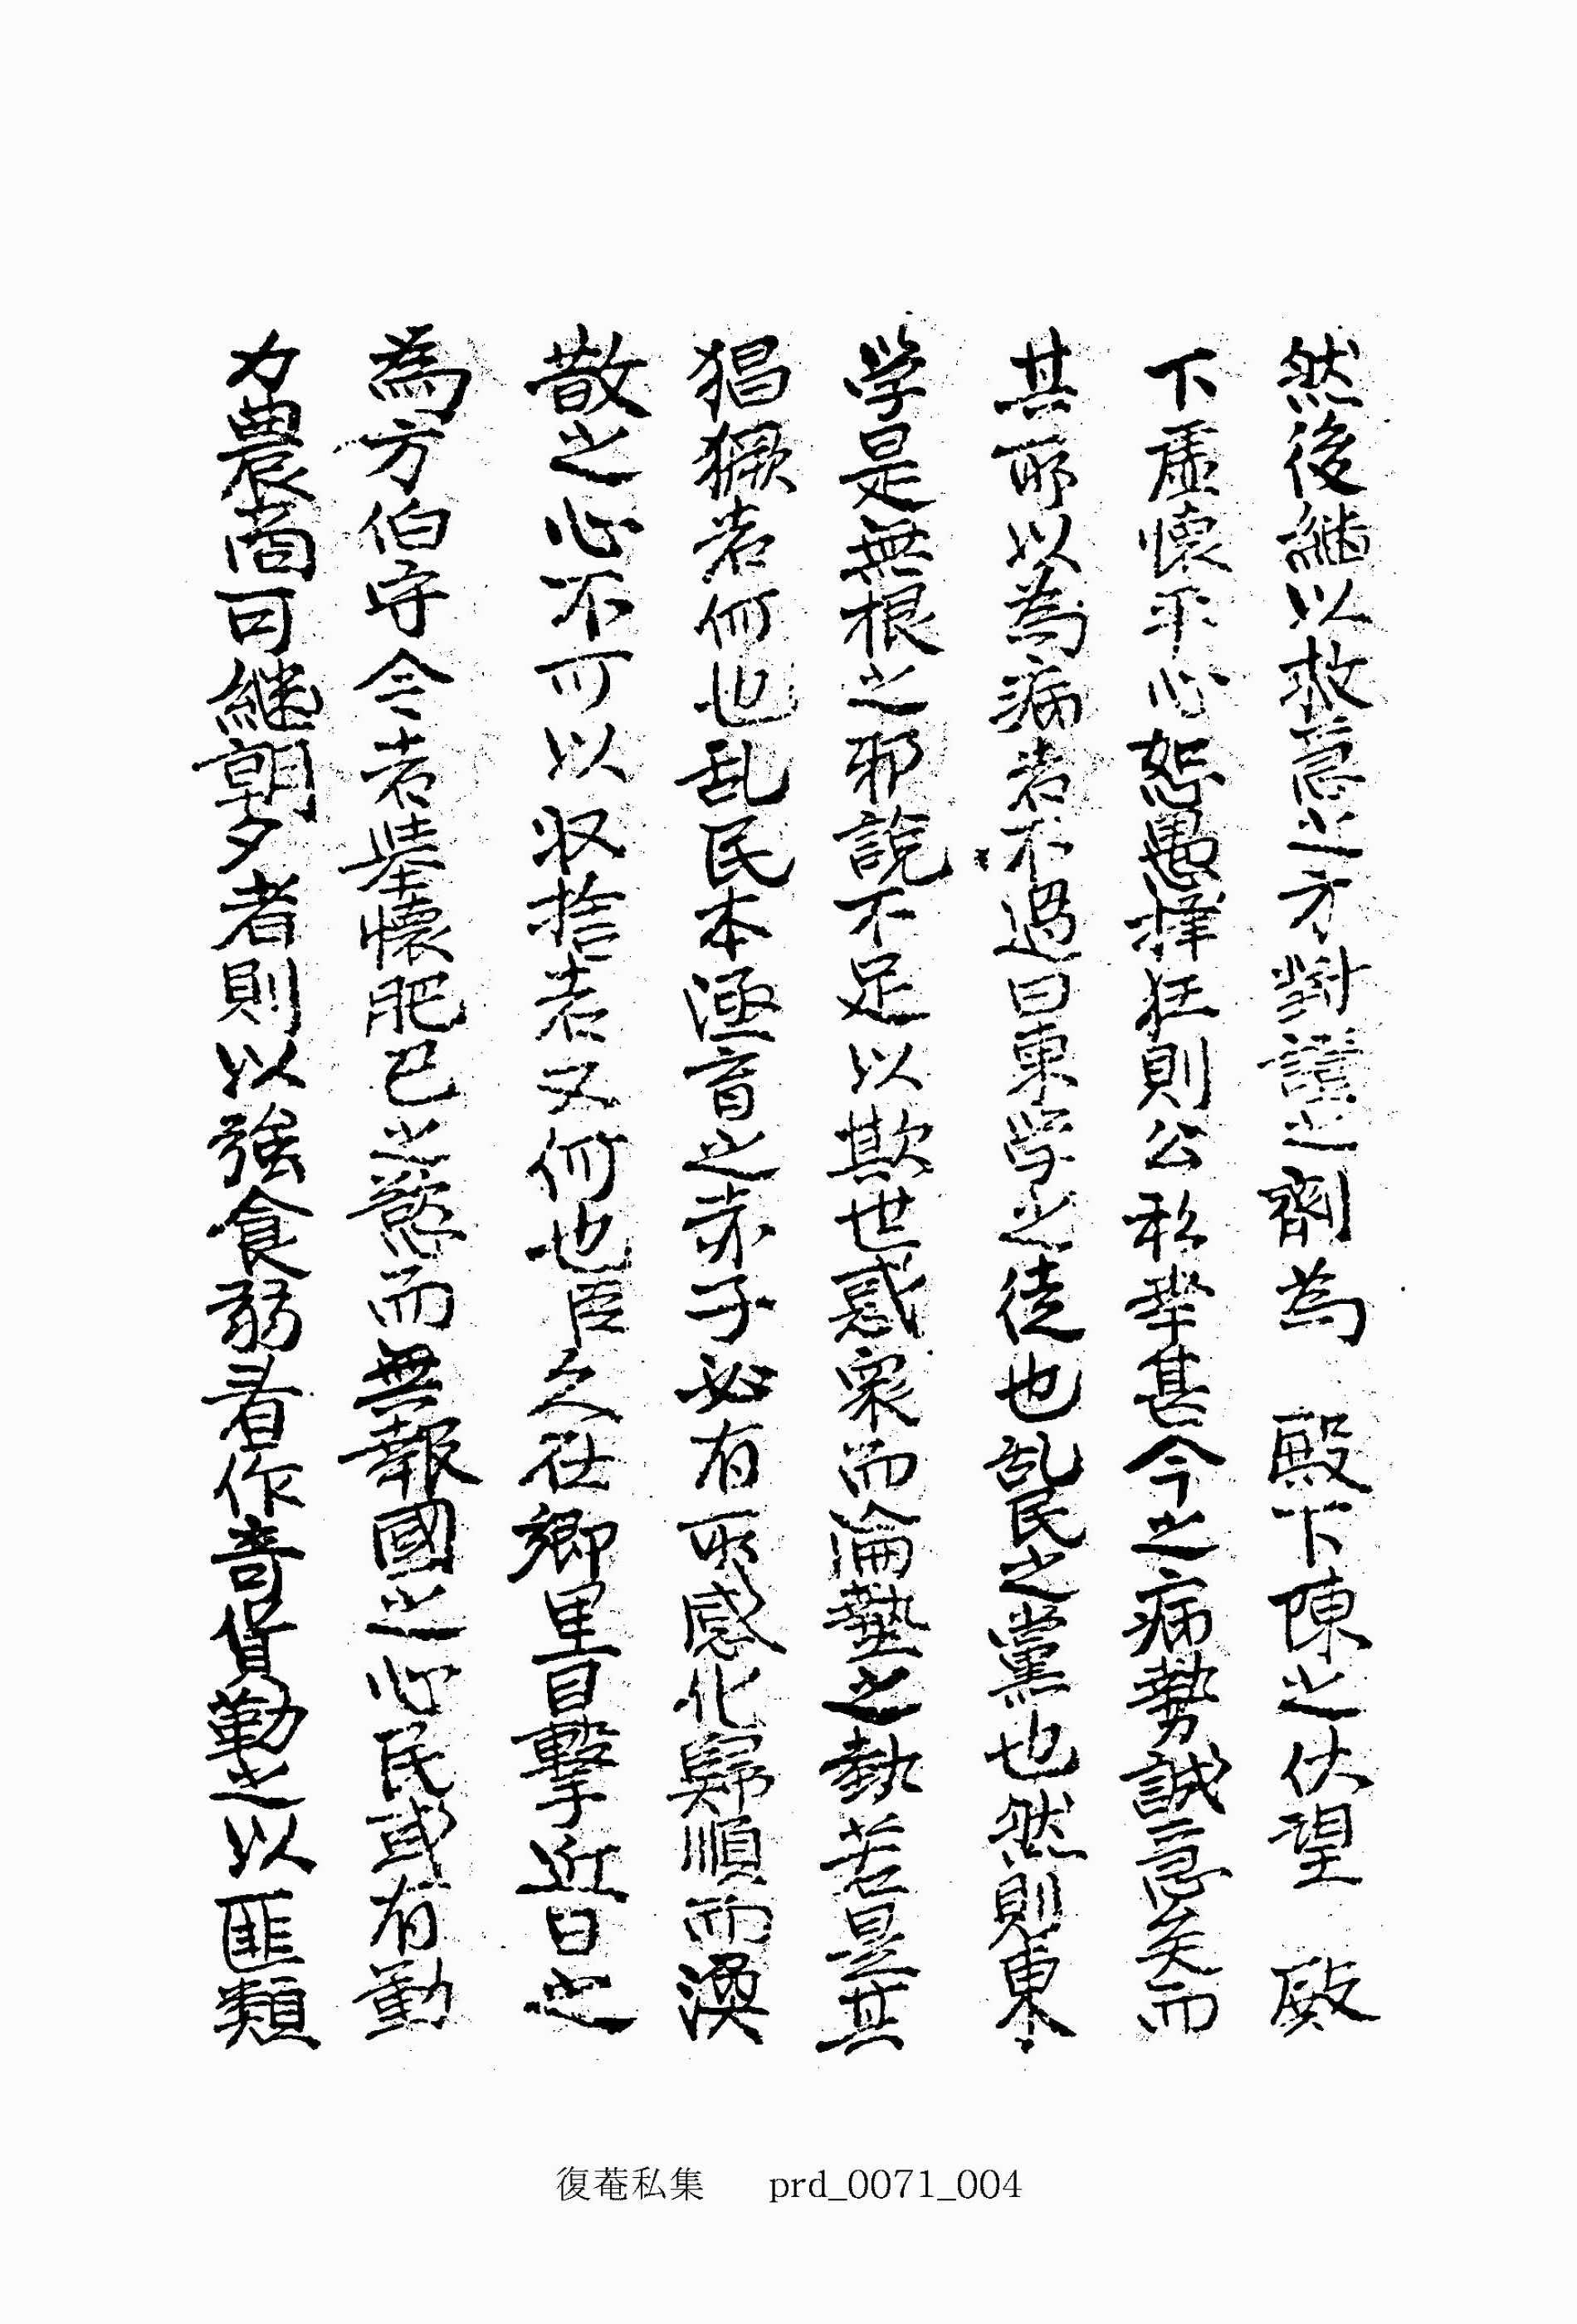 然後繼以救急之方對證之劑為 殿下陳之伏望 殿
下虛懷平心恕愚擇狂則公私幸甚今之病勢誠急矣而
其所以為病者不過曰東学之徒也乱民之黨也然則東
学是無根之邪說不足以欺世惑衆而淪墊之勢若是其
猖獗者何也乱民本涵育之赤子必有所感化歸順而渙
散之心不可以収捨者又何也臣久在鄉里目擊近日之
為方伯守令者皆懷肥己之慾而無報國之心民或有勤
力農啇可継朝夕者則以強食弱看作奇貨勒之以匪類
復菴私集 prd_0071_004